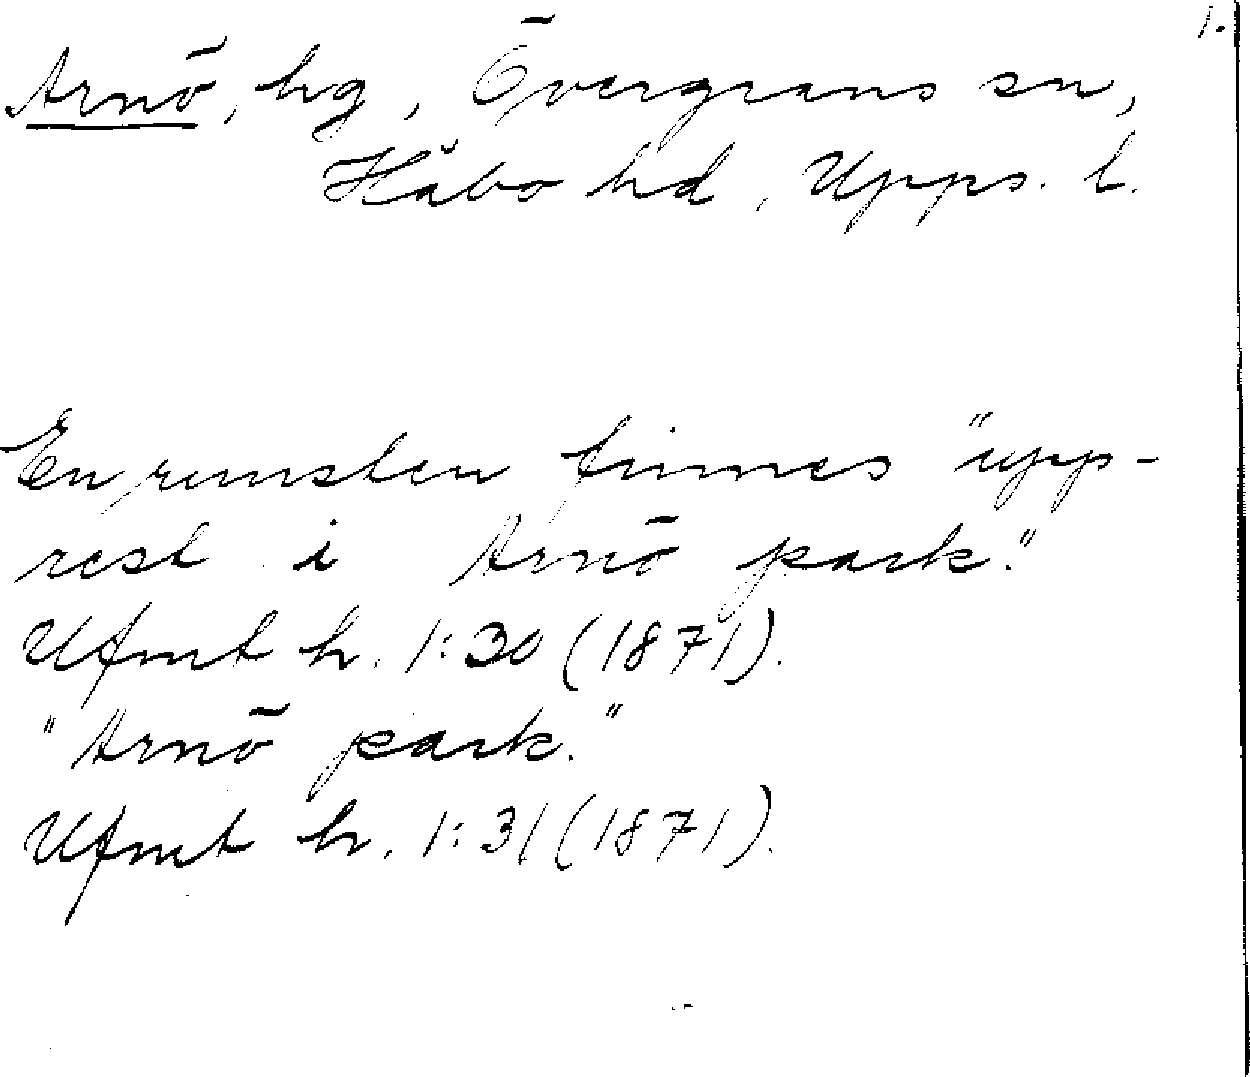 1.
Arnö, hg, Övergrans sn,
Håbo hd, Upps. l.
En runsten finnes "upp-
rest i Arnö park."
Ufmt h. 1:30 (1871).
"Arnö park."
Ufmt h. 1:31 (1871).